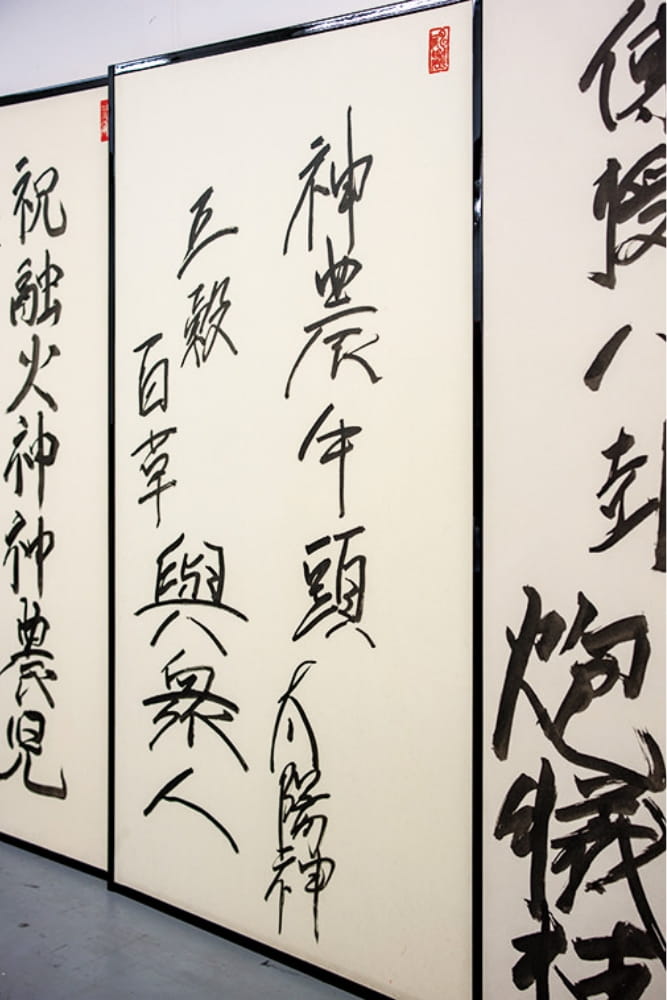 傳授八卦炮犧
神農牛頭太陽神
五穀
百草
與眾人
祝融火神神農児